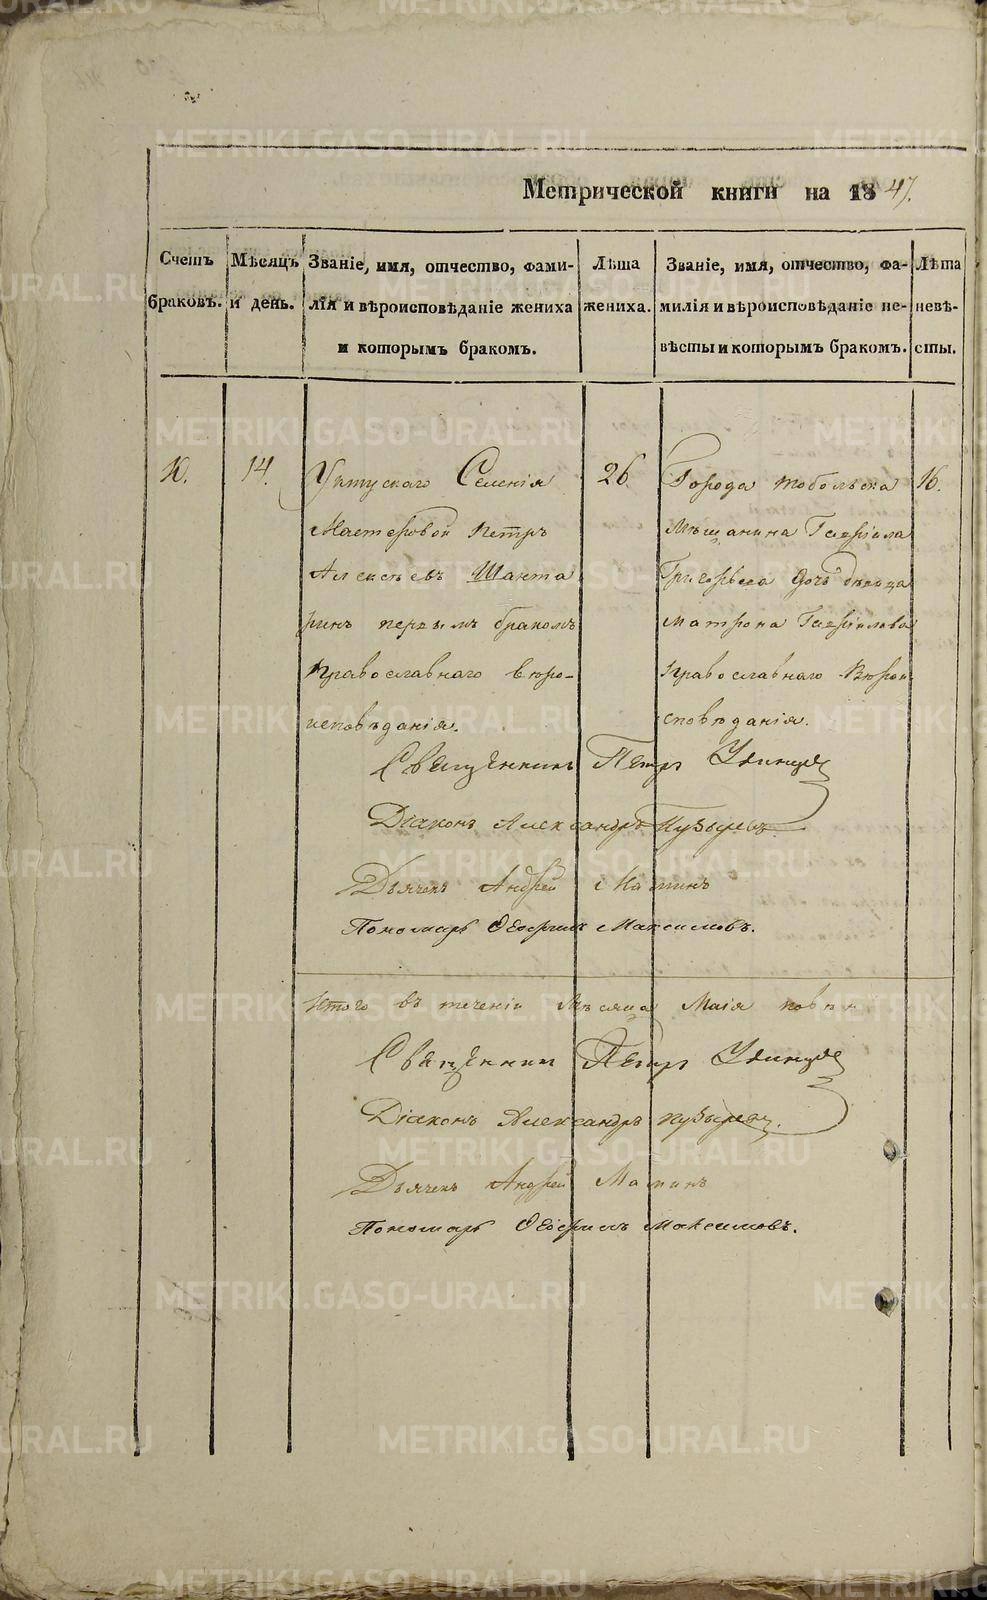 Метрической книги на 1847.
Счетъ браковъ.
Мѣсяцъ и день.
Званіе, имя, отчество, фами-
лія и вѣроисповѣданіе жениха
и которымъ бракомъ.
Лѣта жениха.
Званіе, имя, отчество, фа-
милія и вѣроисповѣданіе не-
вѣсты и которымъ бракомъ.
Лѣта невѣ-
сты.
10.
14.
Уктускаго Селенія
Мастеровой Петръ
Алексѣевъ Шанта
ринъ первымъ бракомъ
Православнаго вѣро-
исповѣданія.
26
Города Тобольска
Мѣщанина Гавріила
Григорьева дочь дѣвица
Матрона Гавріилова
Православнаго Вѣрои
сповѣданія.
16.
Священникъ Петръ Удинцевъ
Діаконъ Александръ Пузыревъ
Дьячекъ Андрей Маминъ
Пономарь Феофилъ Максимовъ.
Итого въ теченіи Мѣсяца Маія
Священникъ Петръ Удинцевъ
Діаконъ Александръ Пузыревъ.
Дьячекъ Андрей Маминъ
Пономарь Феофилъ Максимовъ.
METRIKI.GASO-URAL.RU